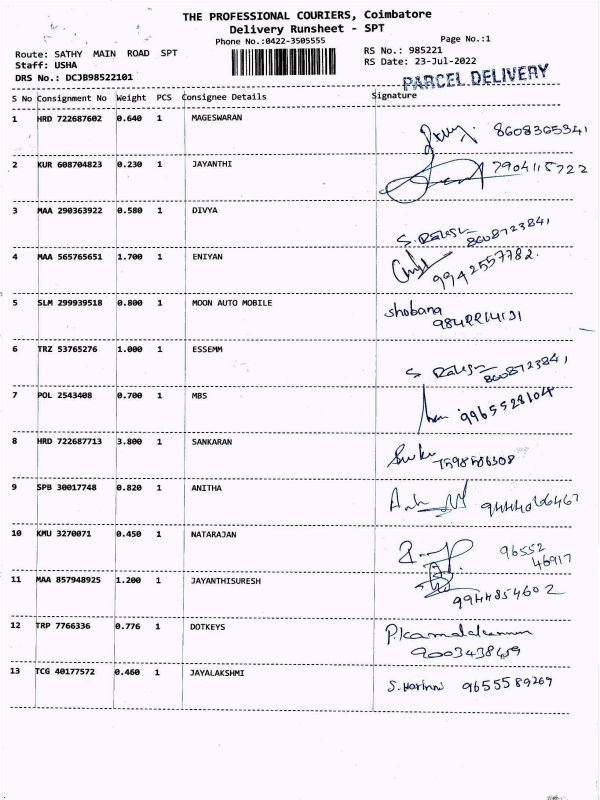 THE PROFESSIONAL COURIERS, Coimbatore
Delivery Runsheet - SPT
Phone No.:0422-3505555
Page No.:1
Route: SATHY MAIN ROAD SPT
RS No.: 985221
Staff: USHA
RS Date: 23-Jul-2022
DRS No.: DCJB98522101
PARCEL DELIVERY
S No Consignment No Weight PCS Consignee Details Signature
1 HRD 722687602 0.640 1 MAGESWARAN
8608365341
2 KUR 608704823 0.230 1 JAYANTHI 7904115722
3 MAA 290363922 0.580 1 DIVYA
8608723841
4 MAA 565765651 1.700 1 ENIYAN
9942557782.
5 SLM 299939518 0.800 1 MOON AUTO MOBILE shobana
6 TRZ 53765276 1.000 1 ESSEMM
8608723841
7 POL 2543408 0.700 1 MBS 9965528104
8 HRD 722687713 3.800 1 SANKARAN
9 SPB 30017748 0.820 1 ANITHA
10 KMU 3270071 0.450 1 NATARAJAN 96552
46917
11 MAA 857948925 1.200 1 JAYANTHISURESH
9944854602
12 TRP 7766336 0.776 1 DOTKEYS
13 TCG 40177572 0.460 1 JAYALAKSHMI 9655589269